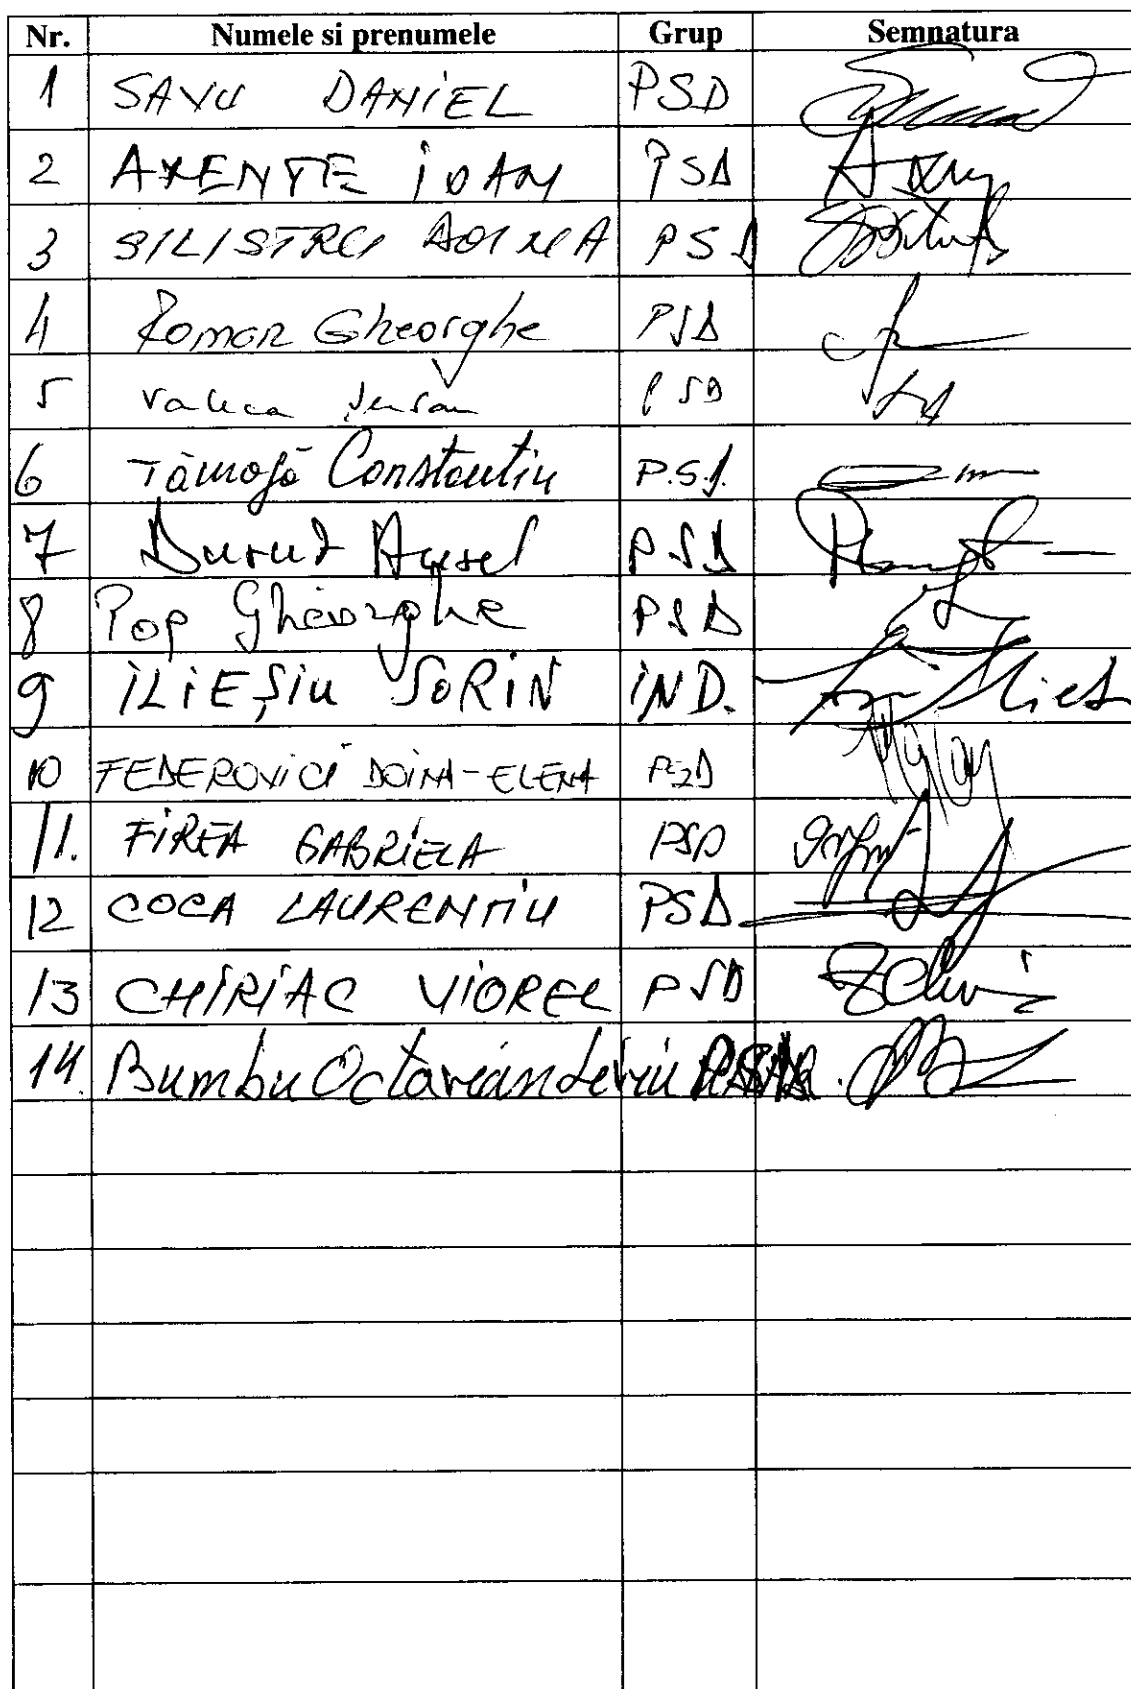 Nr. Numele si prenumele Grup Semnatura
1 SAVU DANIEL PSD
2 AXENTE IOAN PSD
3 SILISTRU DOINA PSD
4 Roman Gheorghe PSD
5 Valeca PSD
6 Tămagă Constantin P.S.D.
7 Durut Aurel PSD
8 Pop Gheorghe PSD
9 ILIEŞIU SORIN IND.
10 FEDEROVICI DOINA-ELENA PSD
11. FIREA GABRIELA PSD
12 COCA LAURENŢIU PSD
13 CHIRIAC VIOREL PSD
14. Bumbu Octavian Liviu